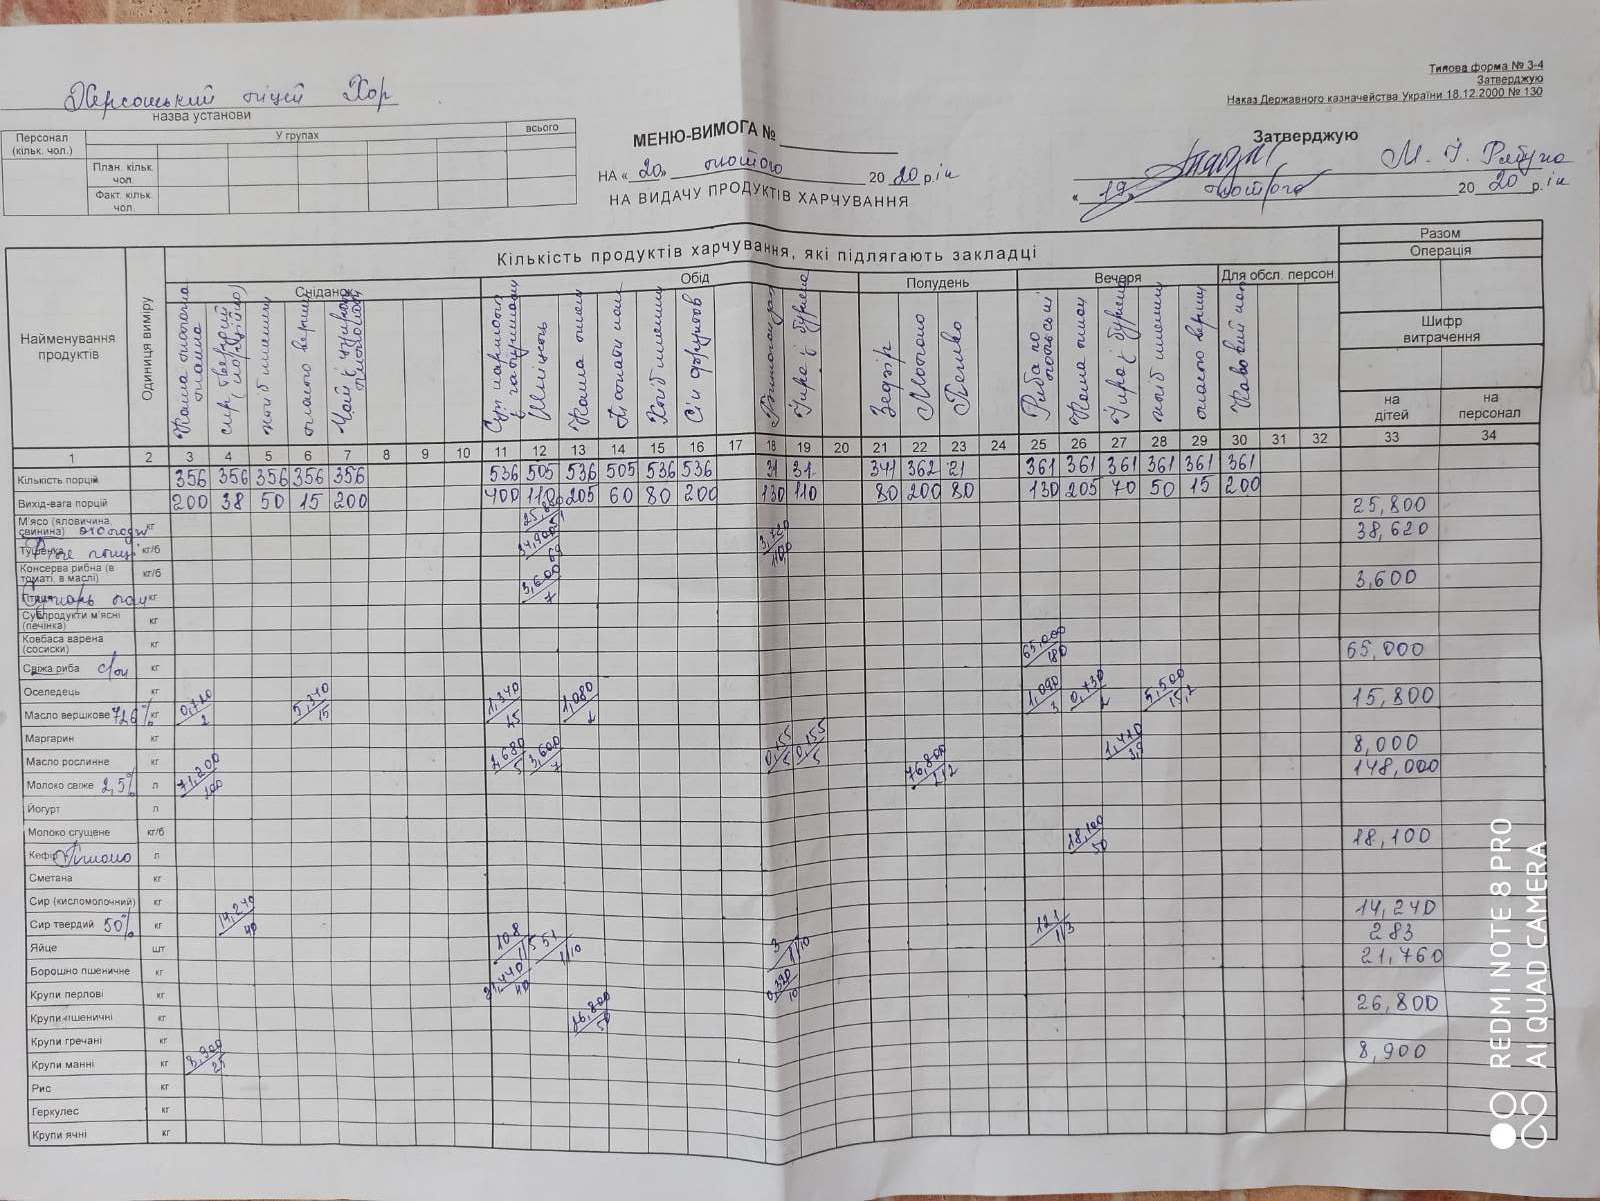 Типова форма № 3-4
Затверджую
Наказ Державного казначейства України 18.12.2000 № 130
Херсонський ліцей Хор
назва установи
Персонал (кільк. чол.) У групах всього
План. кільк. чол.
Факт. кільк. чол.
МЕНЮ-ВИМОГА №
НА «20» лютого 2020 рік
НА ВИДАЧУ ПРОДУКТІВ ХАРЧУВАННЯ
Затверджую
«19» лютого 2020 рік
Найменування продуктів
Одиниця виміру
Кількість продуктів харчування, які підлягають закладці
Сніданок Обід Полудень Вечеря Для обсл. персон
Разом
Операція
Шифр витрачення
на дітей на персонал
Каша молочна манна
сир твердий (порційно)
хліб пшенич
масло верш
Чай з цукром
Шніцель
Каша пшен
Хліб пшенич
Сік фруктов
Зефір
Молоко
Печиво
Риба по польськи
Каша пшон
хліб пшенич
масло верш
1 2 3 4 5 6 7 8 9 10 11 12 13 14 15 16 17 18 19 20 21 22 23 24 25 26 27 28 29 30 31 32 33 34
Кількість порцій 356 356 356 356 356 536 505 536 505 536 536 31 31 341 362 21 361 361 361 361 361 361
Вихід-вага порцій 200 38 50 15 200 400 110 205 60 80 200 130 110 80 200 80 130 205 70 50 15 200
М'ясо (яловичина, свинина) кг 25,800
Тушенка кг/б 34,900 69 3,720 38,620
Консерва рибна (в томаті, в маслі) кг/б
кг 3,600 7 3,600
Субпродукти м'ясні (печінка) кг
Ковбаса варена (сосиски) кг
Свіжа риба кг 65,000 180 65,000
Оселедець кг
Масло вершкове 72,6% кг 0,710 2 5,340 15 1,340 1,080 2 1,090 3 0,730 2 5,500 15,2 15,800
Маргарин кг
Масло рослинне кг 2,680 5 3,600 7 0,155 5 0,155 5 1,410 3,9 8,000
Молоко свіже 2,5% л 71,200 200 76,800 212 148,000
Йогурт л
Молоко сгущене кг/б
Кефір л 18,100 50 18,100
Сметана кг
Сир (кисломолочний) кг
Сир твердий 50% кг 14,240 40 14,240
Яйце шт 108 1/5 51 1/10 3 1/10 121 1/3 283
Борошно пшеничне кг 21,440 40 0,320 10 21,760
Крупи перлові кг
Крупи пшеничні кг 26,800 50 26,800
Крупи гречані кг
Крупи манні кг 8,900 25 8,900
Рис кг
Геркулес кг
Крупи ячні кг
REDMI NOTE 8 PRO
AI QUAD CAMERA